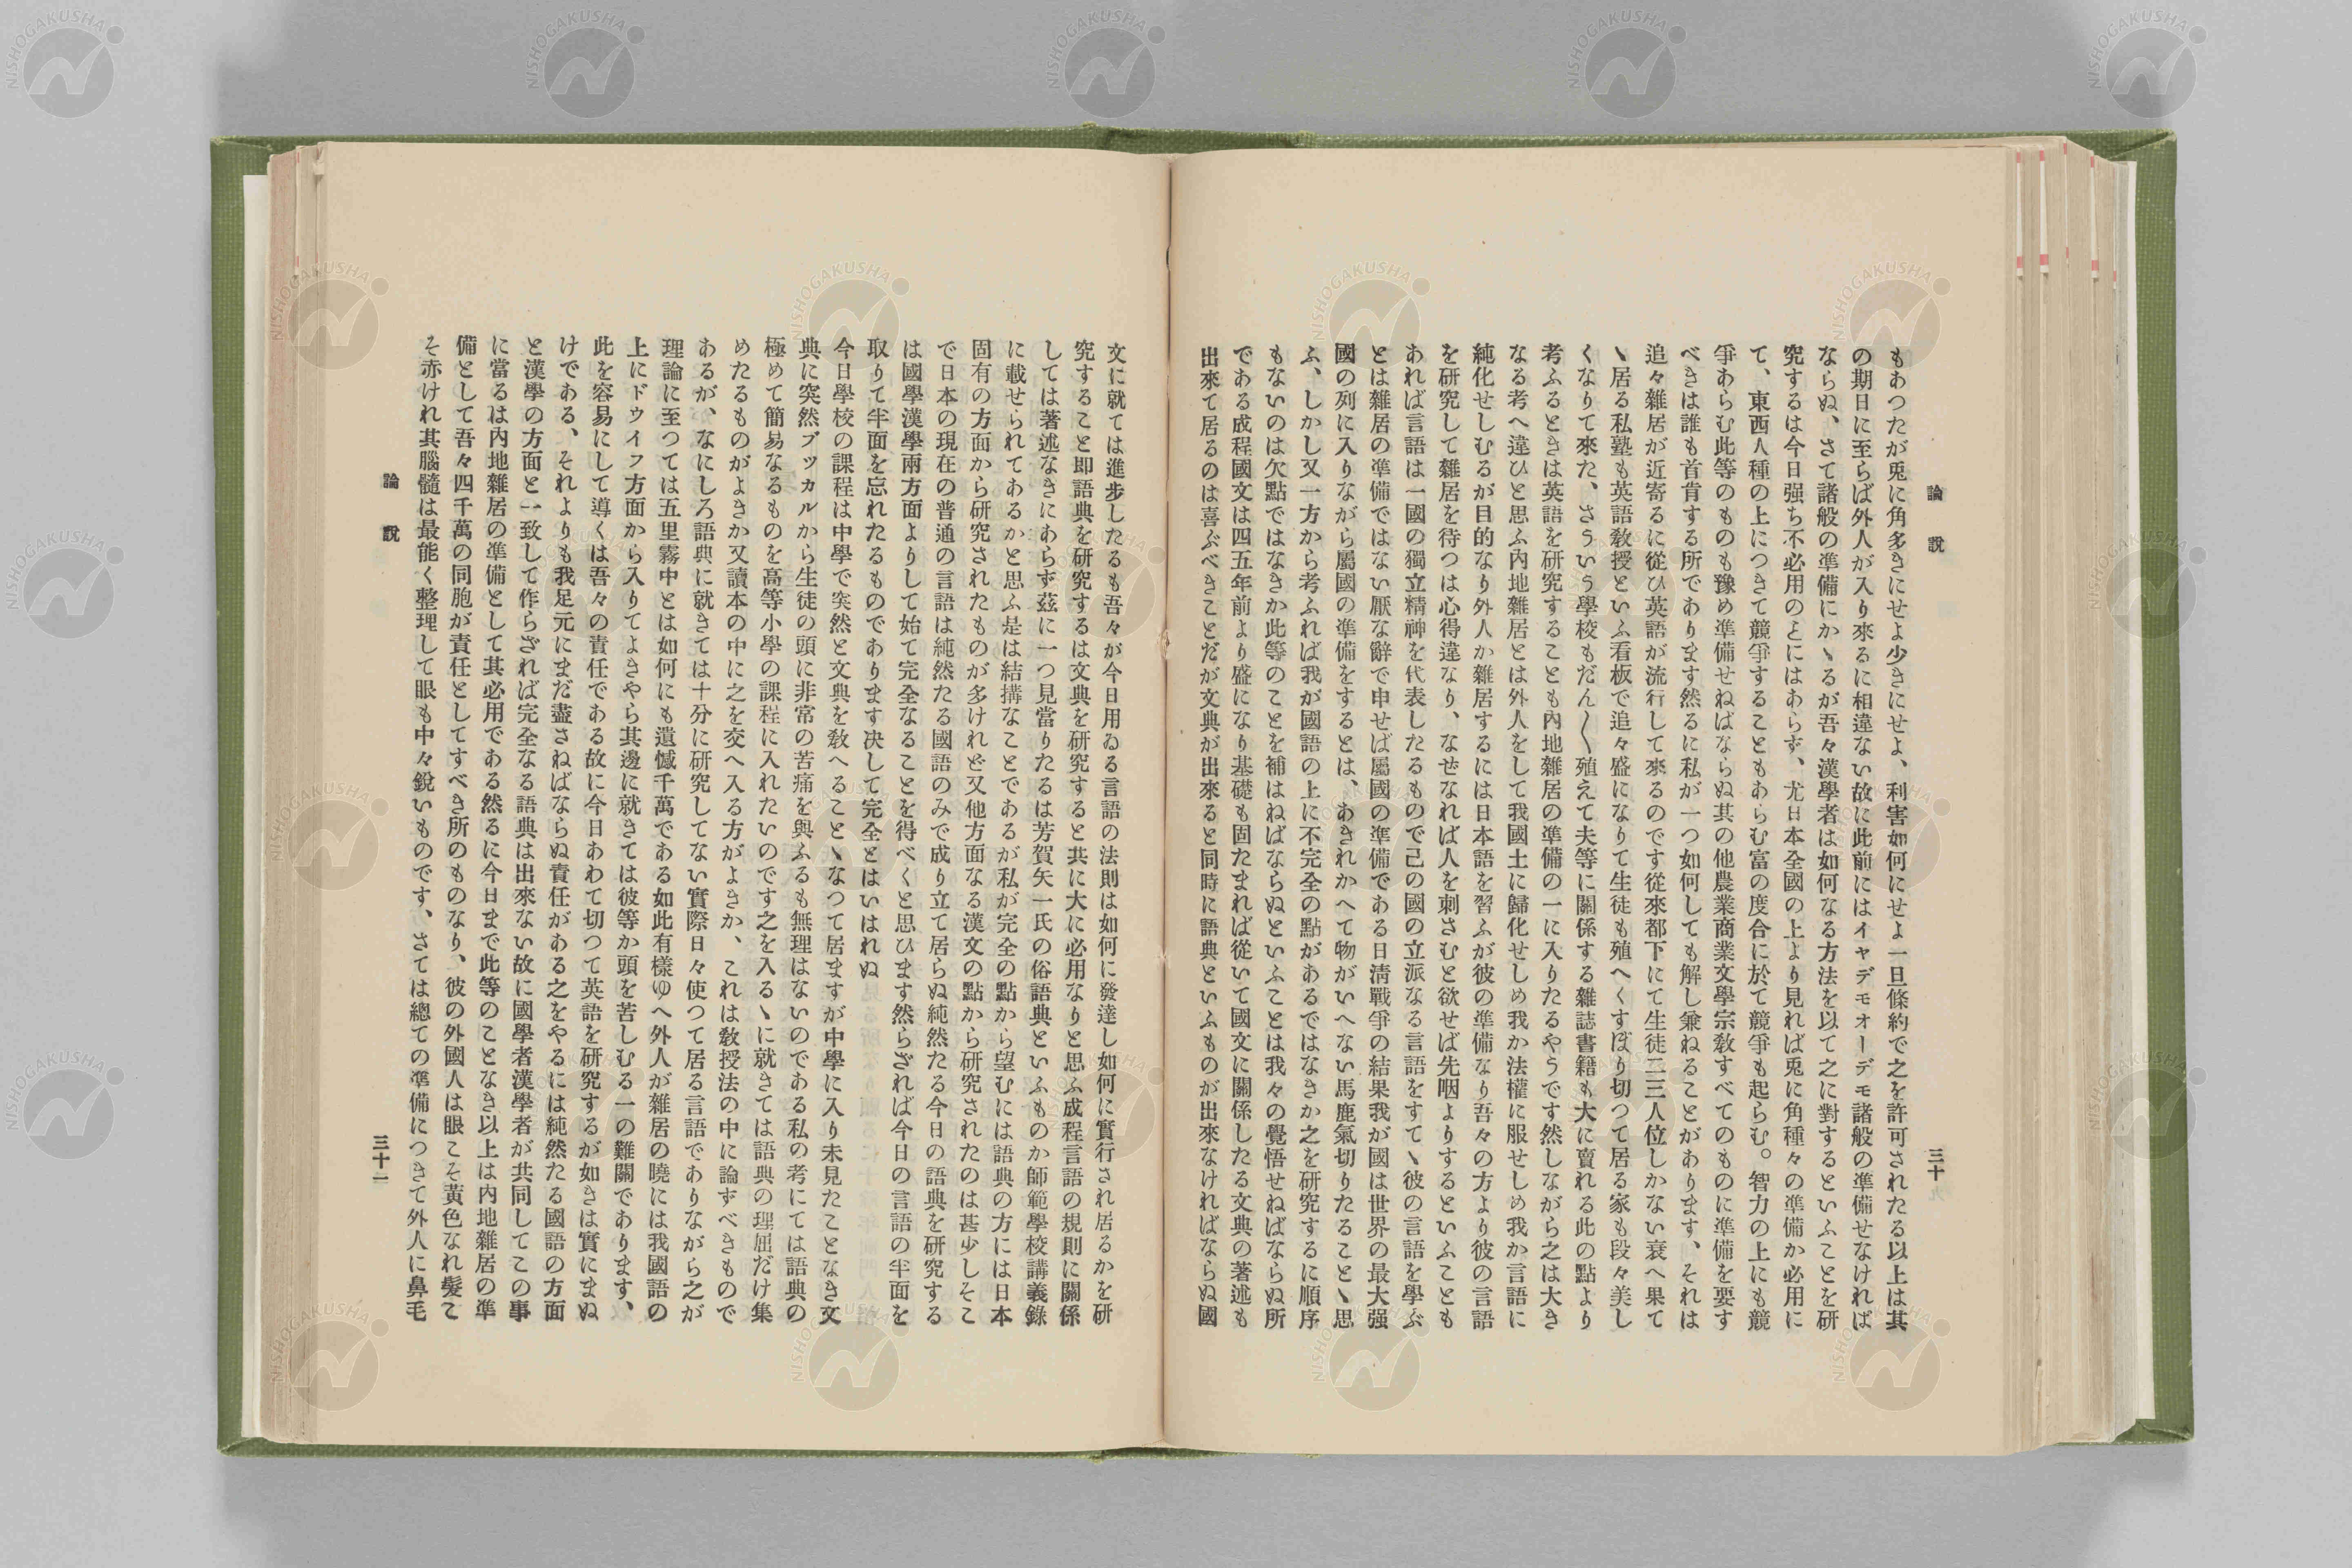 論說
三十
もあつたが兎に角多きにせよ少きにせよ、利害如何にせよ一旦條約で之を許可されたる以上は其
の期日に至らば外人が入り來るに相違ない故に此前にはイヤデモオーデモ諸般の準備せなければ
ならぬ、さて諸般の準備にかゝるが吾々漢學者は如何なる方法を以て之に對するといふことを研
究するは今日强ち不必用のとにはあらず、尤日本全國の上より見れば兎に角種々の準備か必用に
て、東西人種の上につきて競爭することもあらむ富の度合に於て競爭も起らむ。智力の上にも競
爭あらむ此等のものも豫め準備せねばならぬ其の他農業商業文學宗敎すべてのものに準備を要す
べきは誰も首肯する所であります然るに私が一つ如何しても解し兼ねることがあります、それは
追々雜居が近寄るに從ひ英語が流行して來るのです從來都下にて生徒二三人位しかない衰へ果て
ゝ居る私塾も英語敎授といふ看板で追々盛になりて生徒も殖へくすぼり切つて居る家も段々美し
くなりて來た、さういう學校もだん〱殖えて夫等に關係する雜誌書籍も大に賣れる此の點より
考ふるときは英語を研究することも內地雜居の準備の一に入りたるやうです然しながら之は大き
なる考へ違ひと思ふ內地雜居とは外人をして我國土に歸化せしめ我か法權に服せしめ我か言語に
純化せしむるが目的なり外人か雜居するには日本語を習ふが彼の準備なり吾々の方より彼の言語
を研究して雜居を待つは心得違なり、なせなれば人を刺さむと欲せば先咽よりするといふことも
あれば言語は一國の獨立精神を代表したるもので己の國の立派なる言語をすてゝ彼の言語を學ぶ
とは雜居の準備ではない厭な辭で申せば屬國の準備である日淸戰爭の結果我が國は世界の最大强
國の列に入りながら屬國の準備をするとは、あきれかへて物がいへない馬鹿氣切りたることゝ思
ふ、しかし又一方から考ふれば我が國語の上に不完全の點があるではなきか之を硏究するに順序
もないのは欠點ではなきか此等のことを補はねばならぬといふことは我々の覺悟せねばならぬ所
である成程國文は四五年前より盛になり基礎も固たまれば從いて國文に關係したる文典の著述も
出來て居るのは喜ぶべきことだが文典が出來ると同時に語典といふものが出來なければならぬ國
文に就ては進步したるも吾々が今日用ゐる言語の法則は如何に發達し如何に實行され居るかを研
究すること即語典を研究するは文典を研究すると共に大に必用なりと思ふ成程言語の規則に關係
しては著述なきにあらず茲に一つ見當りたるは芳賀矢一氏の俗語典といふものか師範學校講義錄
に載せられてあるかと思ふ是は結搆なことであるが私が完全の點から望むには語典の方には日本
固有の方面から研究されたものが多けれど又他方面なる漢文の點から研究されたのは甚少しそこ
で日本の現在の普通の言語は純然たる國語のみで成り立て居らぬ純然たる今日の語典を研究する
は國學漢學兩方面よりして始て完全なることを得べくと思ひます然らざれば今日の言語の半面を
取りて半面を忘れたるものであります決して完全とはいはれぬ
今日學校の課程は中學で突然と文典を敎へることゝなつて居ますが中學に入り未見たことなき文
典に突然ブッカルから生徒の頭に非常の苦痛を與ふるも無理はないのである私の考にては語典の
極めて簡易なるものを高等小學の課程に入れたいのです之を入るゝに就きては語典の理屈だけ集
めたるものがよきか又讀本の中に之を交へ入る方がよきか、これは敎授法の中に論ずべきもので
あるが、なにしろ語典に就きては十分に研究してない實際日々使つて居る言語でありながら之が
理論に至つては五里霧中とは如何にも遺憾千萬である如此有樣ゆへ外人が雜居の曉には我國語の
上にドウイフ方面から入りてよきやら其邊に就きては彼等か頭を苦しむる一の難關であります、
此を容易にして導くは吾々の責任である故に今日あわて切つて英語を研究するが如きは實にまぬ
けである、それよりも我足元にまだ盡さねばならぬ責任がある之をやるには純然たる國語の方面
と漢學の方面と一致して作らざれば完全なる語典は出來ない故に國學者漢學者が共同してこの事
に當るは內地雜居の準備として其必用である然るに今日まで此等のことなき以上は內地雜居の準
備として吾々四千萬の同胞が責任としてすべき所のものなり、彼の外國人は眼こそ黃色なれ髮こ
そ赤けれ其腦髓は最能く整理して眼も中々銳いものです、さては總ての準備につきて外人に鼻毛
論說
三十一